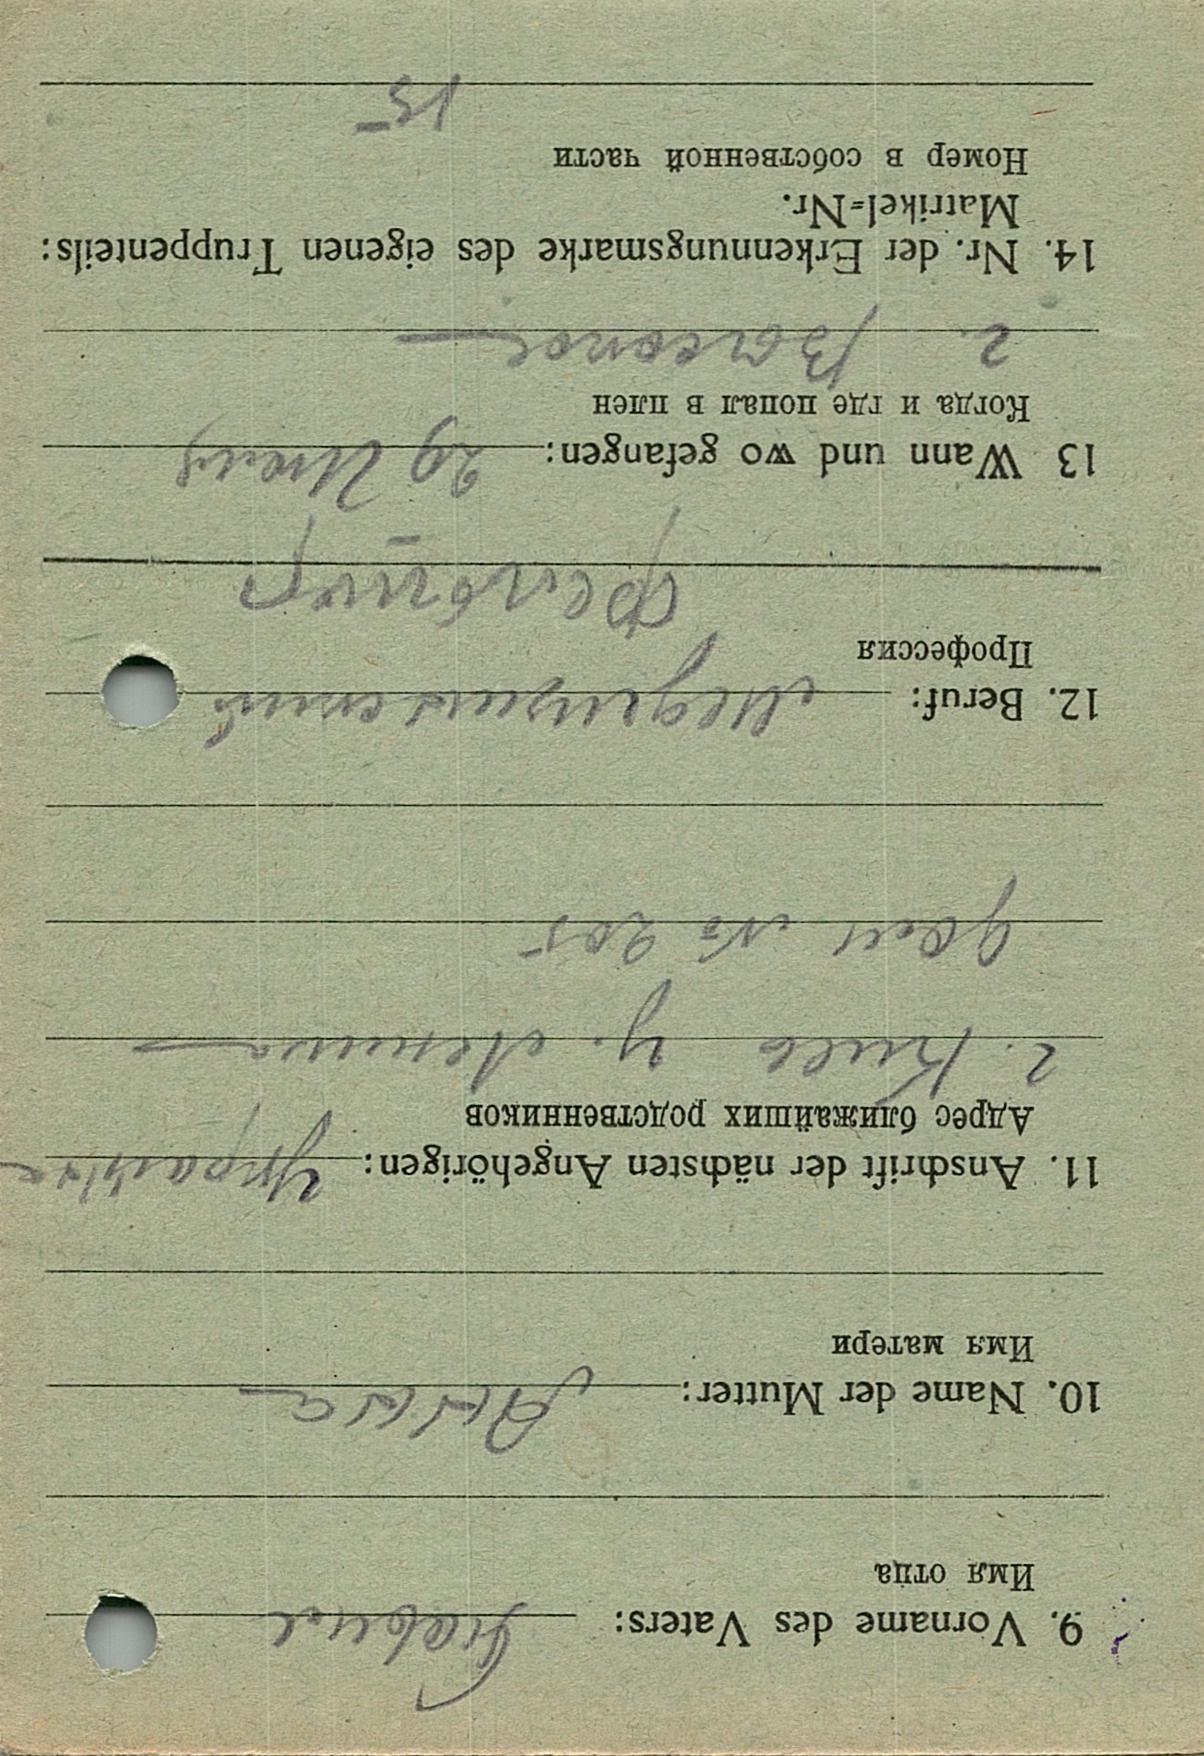 9. Vorname des Vaters:
Имя отца
10. Name der Mutter: Анна
Имя матери
11. Anschrift der nächsten Angehörigen: Украина
Адрес ближайших родственников
г. Киев у. Ленина
дом № 205
12. Beruf: Медицинский
Профессия
фельдшер
13 Wann und wo gefangen: 29 Июня
Когда и где попал в плен
г.
14. Nr. der Erkennungsmarke des eigenen Truppenteils:
Matrikel=Nr.
Номер в собственной части
15